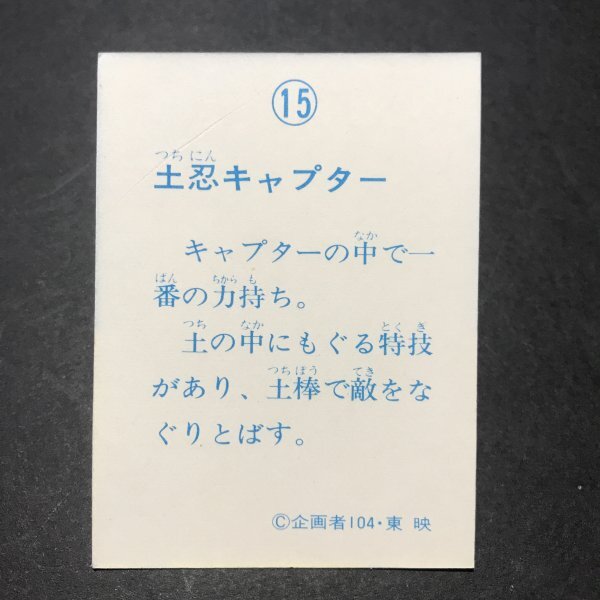 15
つちにん
土忍キャプター
なか
キャプターの中で一
ばん ちから も
番の力持ち。
つち なか とくぎ
土の中にもぐる特技
つちぼう てき
があり、土棒で敵をな
ぐりとばす。
©企画者104・東映